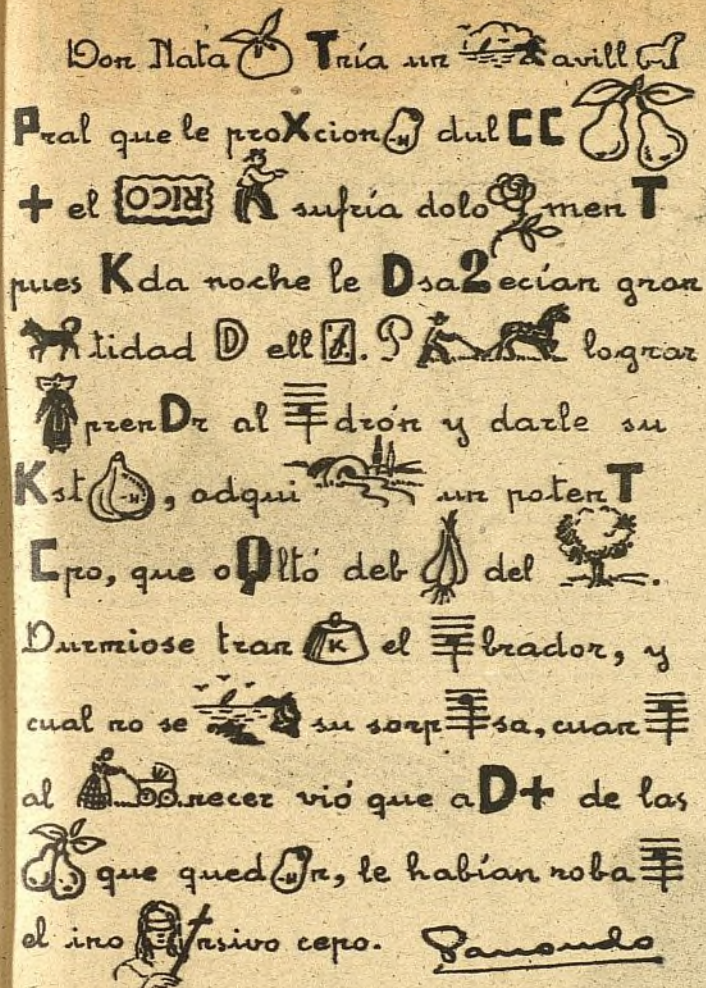 Don Nata Tría un avill
Pral que le proXcion -H dul CC
+ el RICO sufría dolo men T
pues K da noche le D sa2ecían gran
tidad D ell 1. P lograr
pren Dr al drón y darle su
K st -H, adqui un poten T
C pro, que o Q ltó deb del .
Durmiose tran K el brador, y
cual no se su sorp sa, cuan
al necer vió que a D+ de las
que qued -H n, le habían roba
el ino nsivo cepo.